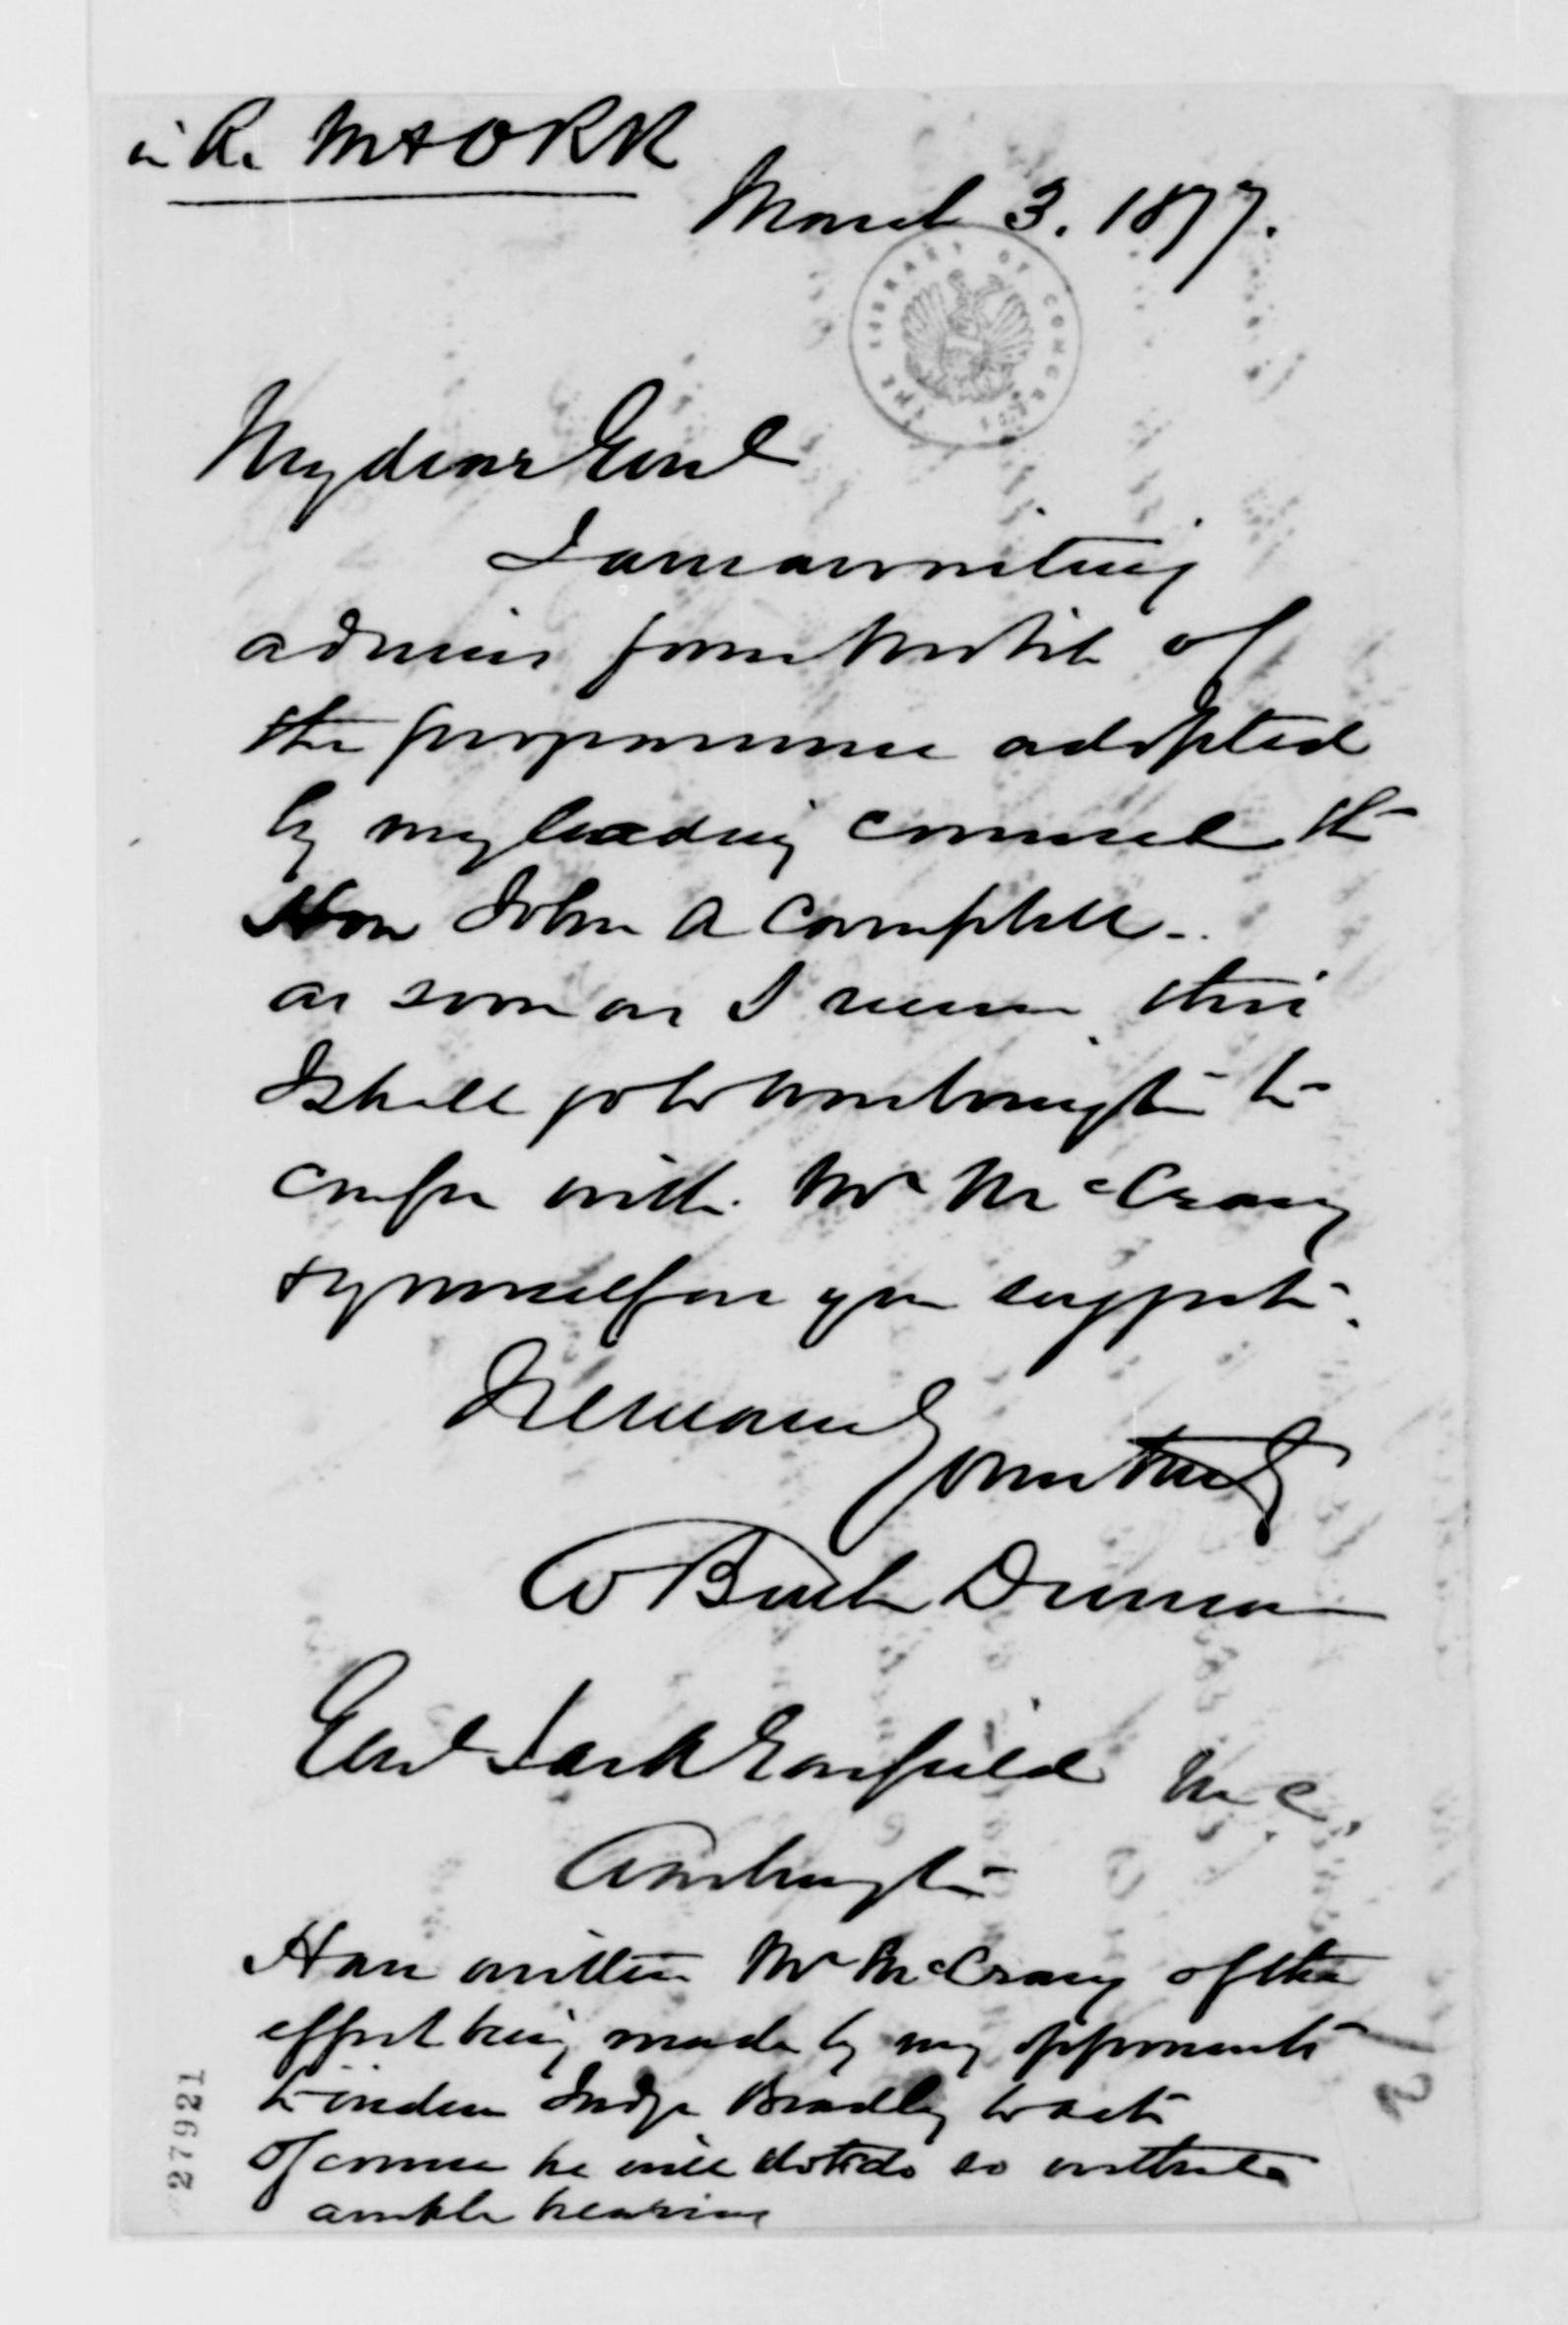 in Re M & O RR
March 3. 1877.
THE LIBRARY OF CONGRESS
My dear Genl
I am awaiting
advices from Mobile of
the programme adopted
by my leading counsel the
Hon John A Campbell -
as soon as I receive this
I shall go to Washington to
confer with Mr McCrary
& yourself as you suggest
I remain
Yours truly
W Butler Duncan
Genl Jas A Garfield M C
Washington
Have written Mr McCrary of the
effort being made by my opponents
to induce Judge Bradley to act
Of course he will not do so without
ample hearing
27921